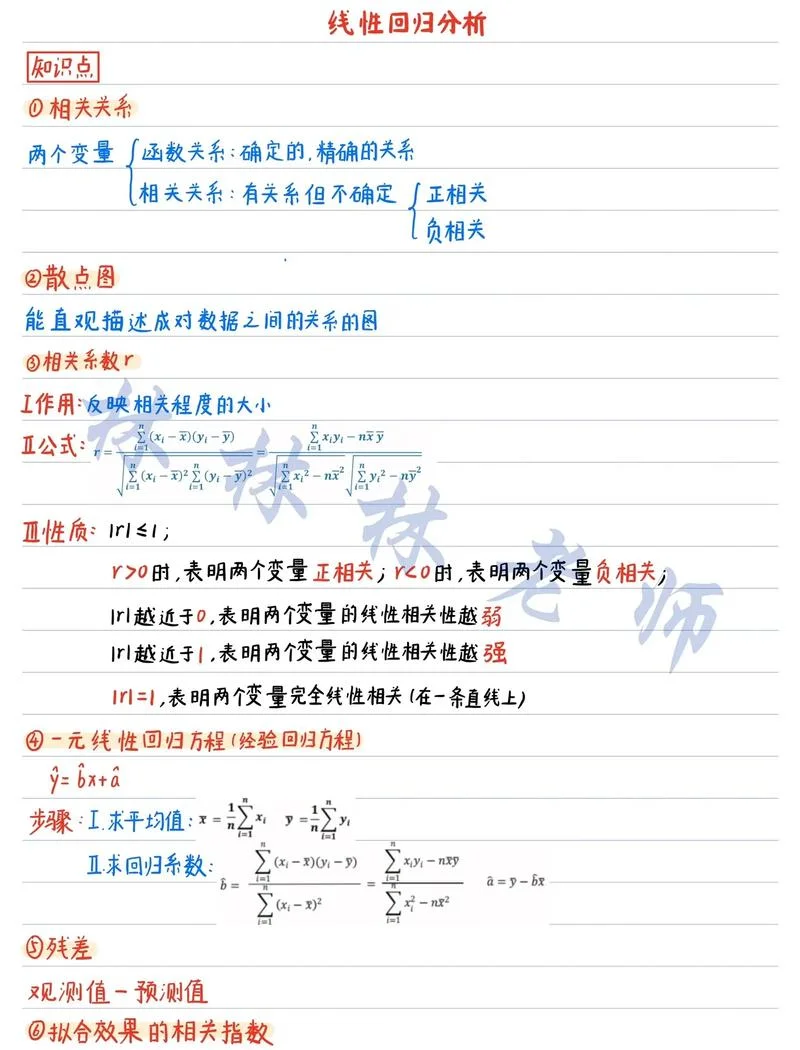 线性回归分析
知识点
①相关关系
两个变量
函数关系:确定的,精确的关系
相关关系:有关系但不确定
正相关
负相关
②散点图
能直观描述成对数据之间的关系的图
③相关系数r
Ⅰ作用:反映相关程度的大小
Ⅱ公式: r = \frac{\sum_{i=1}^{n}(x_i-\overline{x})(y_i-\overline{y})}{\sqrt{\sum_{i=1}^{n}(x_i-\overline{x})^2\sum_{i=1}^{n}(y_i-\overline{y})^2}} = \frac{\sum_{i=1}^{n}x_iy_i-n\overline{x}\,\overline{y}}{\sqrt{\sum_{i=1}^{n}x_i^2-n\overline{x}^2}\sqrt{\sum_{i=1}^{n}y_i^2-n\overline{y}^2}}
Ⅲ性质: |r|≤1;
r>0时,表明两个变量正相关;r<0时,表明两个变量负相关;
|r|越近于0,表明两个变量的线性相关性越弱
|r|越近于1,表明两个变量的线性相关性越强
|r|=1,表明两个变量完全线性相关(在一条直线上)
④一元线性回归方程(经验回归方程)
ŷ=b̂x+â
步骤:Ⅰ.求平均值: \overline{x} = \frac{1}{n}\sum_{i=1}^{n}x_i \overline{y} = \frac{1}{n}\sum_{i=1}^{n}y_i
Ⅱ.求回归系数: \hat{b} = \frac{\sum_{i=1}^{n}(x_i-\bar{x})(y_i-\bar{y})}{\sum_{i=1}^{n}(x_i-\bar{x})^2} = \frac{\sum_{i=1}^{n}x_iy_i-n\bar{x}\bar{y}}{\sum_{i=1}^{n}x_i^2-n\bar{x}^2} \hat{a} = \bar{y}-\hat{b}\bar{x}
⑤残差
观测值-预测值
⑥拟合效果的相关指数
林林林老师